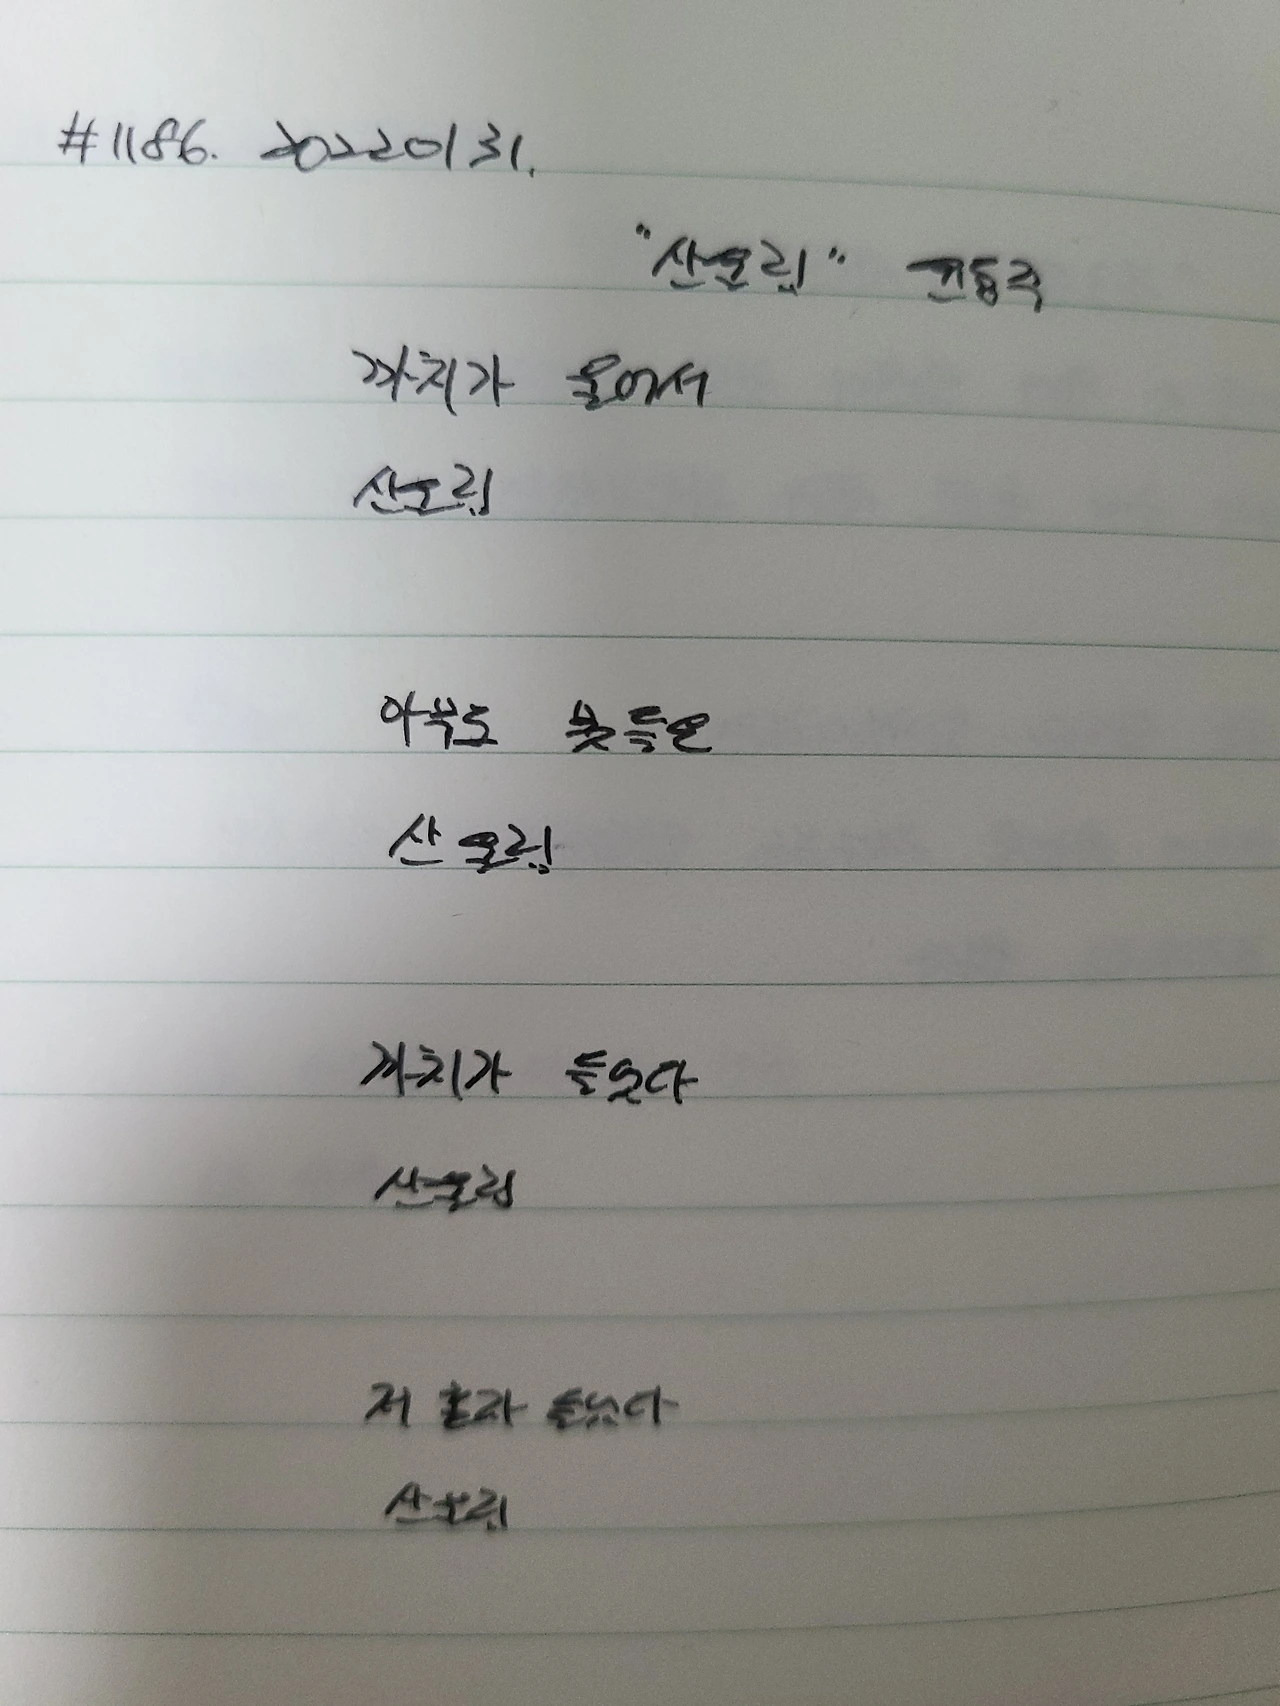 #1186. 20220131.
"산울림" 윤동주
까치가 울어서
산울림
아무도 못들은
산울림
까치가 들었다
산울림
저 혼자 들었다
산울림